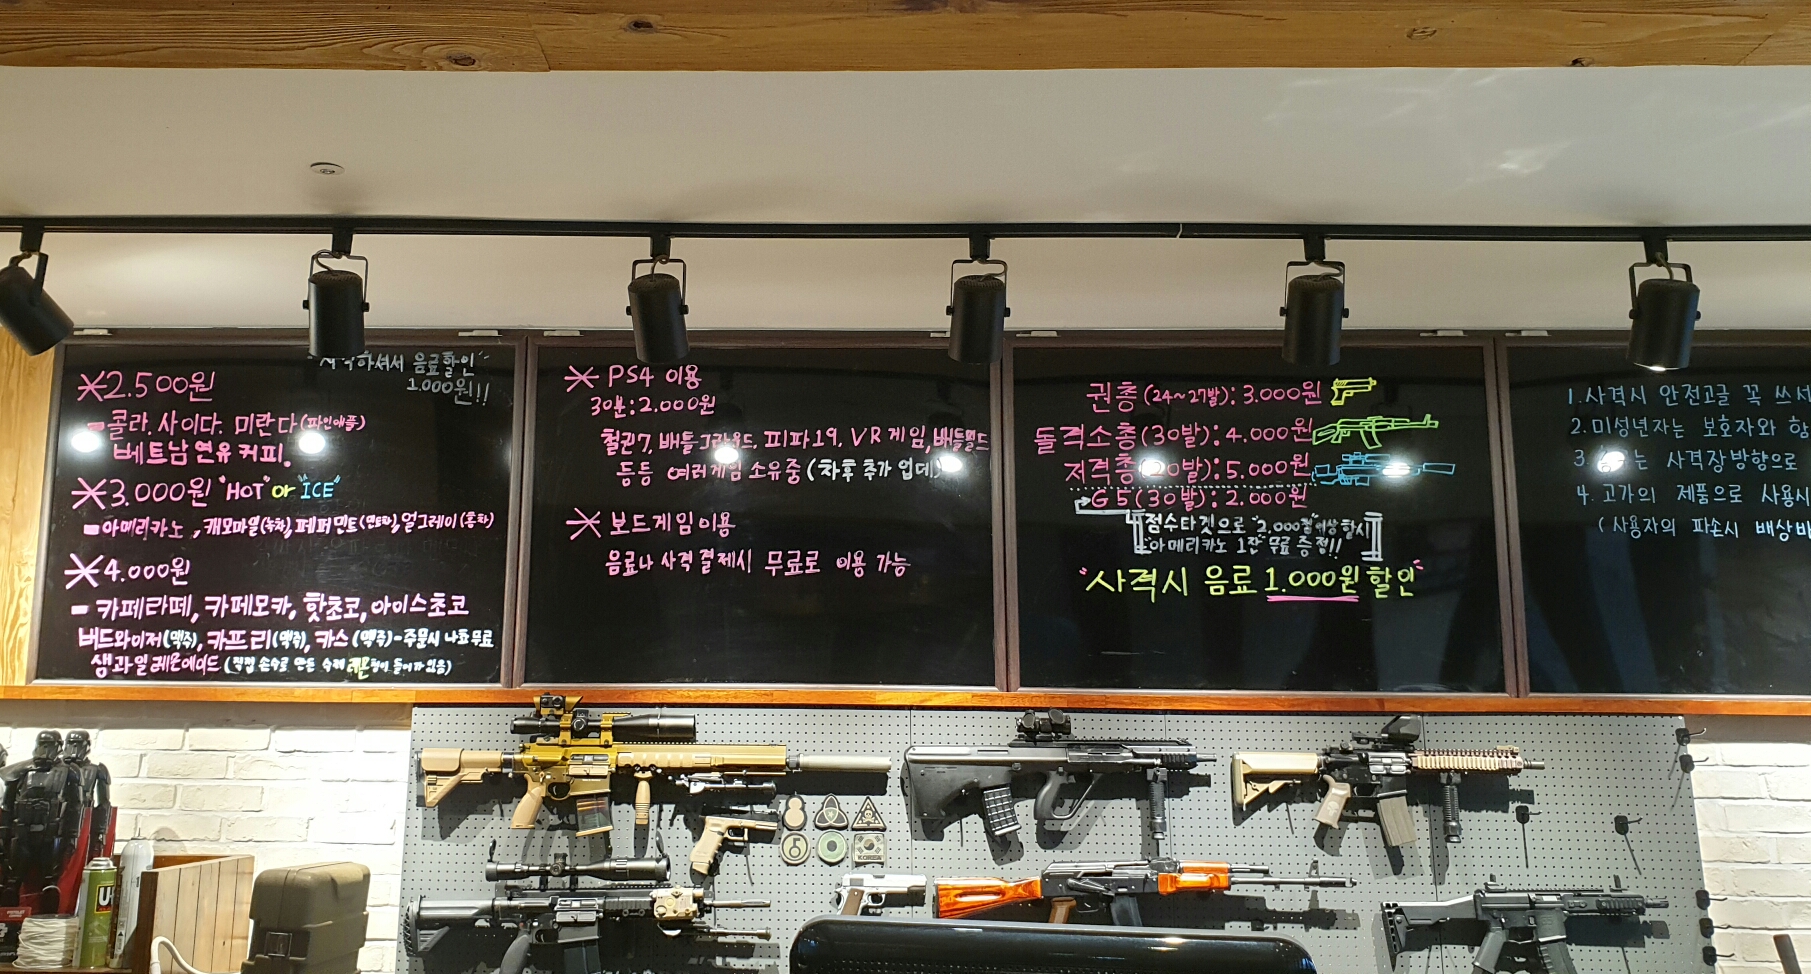 음료할인
1.000원!!
2.500원
콜라. 사이다. 미란다 (파인애플)
베트남 연유 커피.
3.000원 "HOT" or "ICE"
아메리카노, 캐모마일(녹차), 페퍼민트(민트차), 얼그레이(홍차)
4.000원
- 카페라떼, 카페모카, 핫초코, 아이스초코
버드와이저(맥주), 카프리(맥주), 카스 (맥주) - 주문시 나쵸 무료
생과일 레몬에이드 (직접 손수로 만든 수제 레몬청이 들어가있음)
PS4 이용
30분: 2.000원
철권7, 배틀그라운드, 피파19, VR게임, 배틀필드
등등 여러게임 소유중 (차후 추가 업데)
보드게임 이용
음료나 사격 결제시 무료로 이용 가능
권총 (24~27발): 3.000원
돌격소총 (30발): 4.000원
저격총 (20발): 5.000원
G5 (30발): 2.000원
점수타겟으로 "2.000점"이상 할시
"아메리카노 1잔" 무료 증정!!
"사격시 음료 1.000원 할인"
1. 사격시 안전고글 꼭 쓰셔
2. 미성년자는 보호자와 함
3. 는 사격장방향으로
4. 고가의 제품으로 사용시
(사용자의 파손시 배상
KOREA